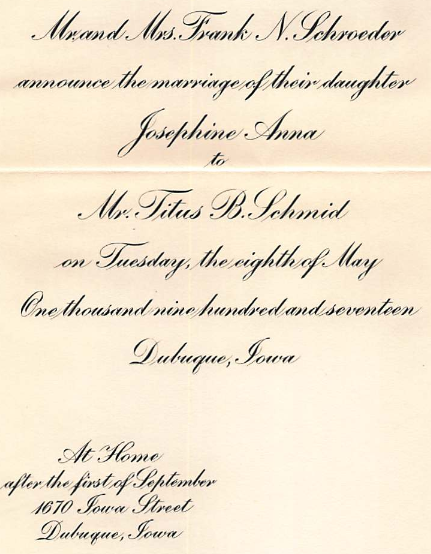 Mr. and Mrs. Frank N. Schroeder
announce the marriage of their daughter
Josephine Anna
to
Mr. Titus B. Schmid
on Tuesday, the eighth of May
One thousand nine hundred and seventeen
Dubuque, Iowa
At Home
after the first of September
1670 Iowa Street
Dubuque, Iowa